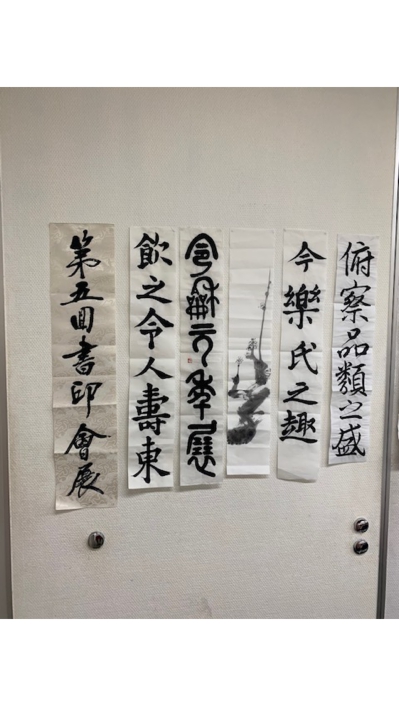 俯察品類之盛
今樂氏之趣
令龢元年展
飲之令人壽東
第五回書印會展